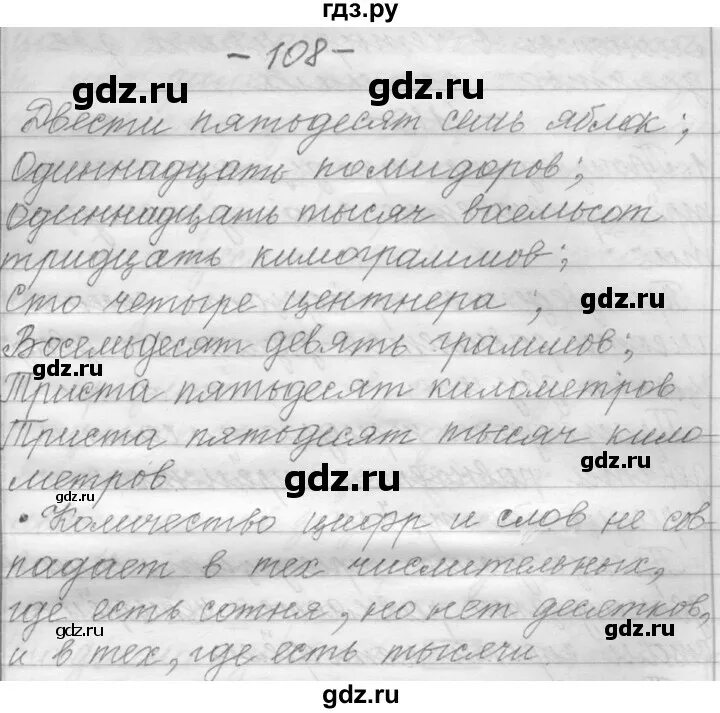 гдз.ру
- 108 -
gdz.ru gdz.ru
Двести пятьдесят семь яблок;
Одиннадцать помидоров;
Одиннадцать тысяч восемьсот
тридцать килограммов;
Сто четыре центнера;
gdz.ru
Восемьдесят девять граммов;
gdz.ru
Триста пятьдесят километров.
Триста пятьдесят тысяч кило-
gdz.ru
метров.
gdz.ru gdz.ru
• Количество цифр и слов не сов-
падает в тех числительных,
где есть сотня, но нет десятков,
gdz.ru gdz.ru
и в тех, где есть тысячи.
gdz.ru